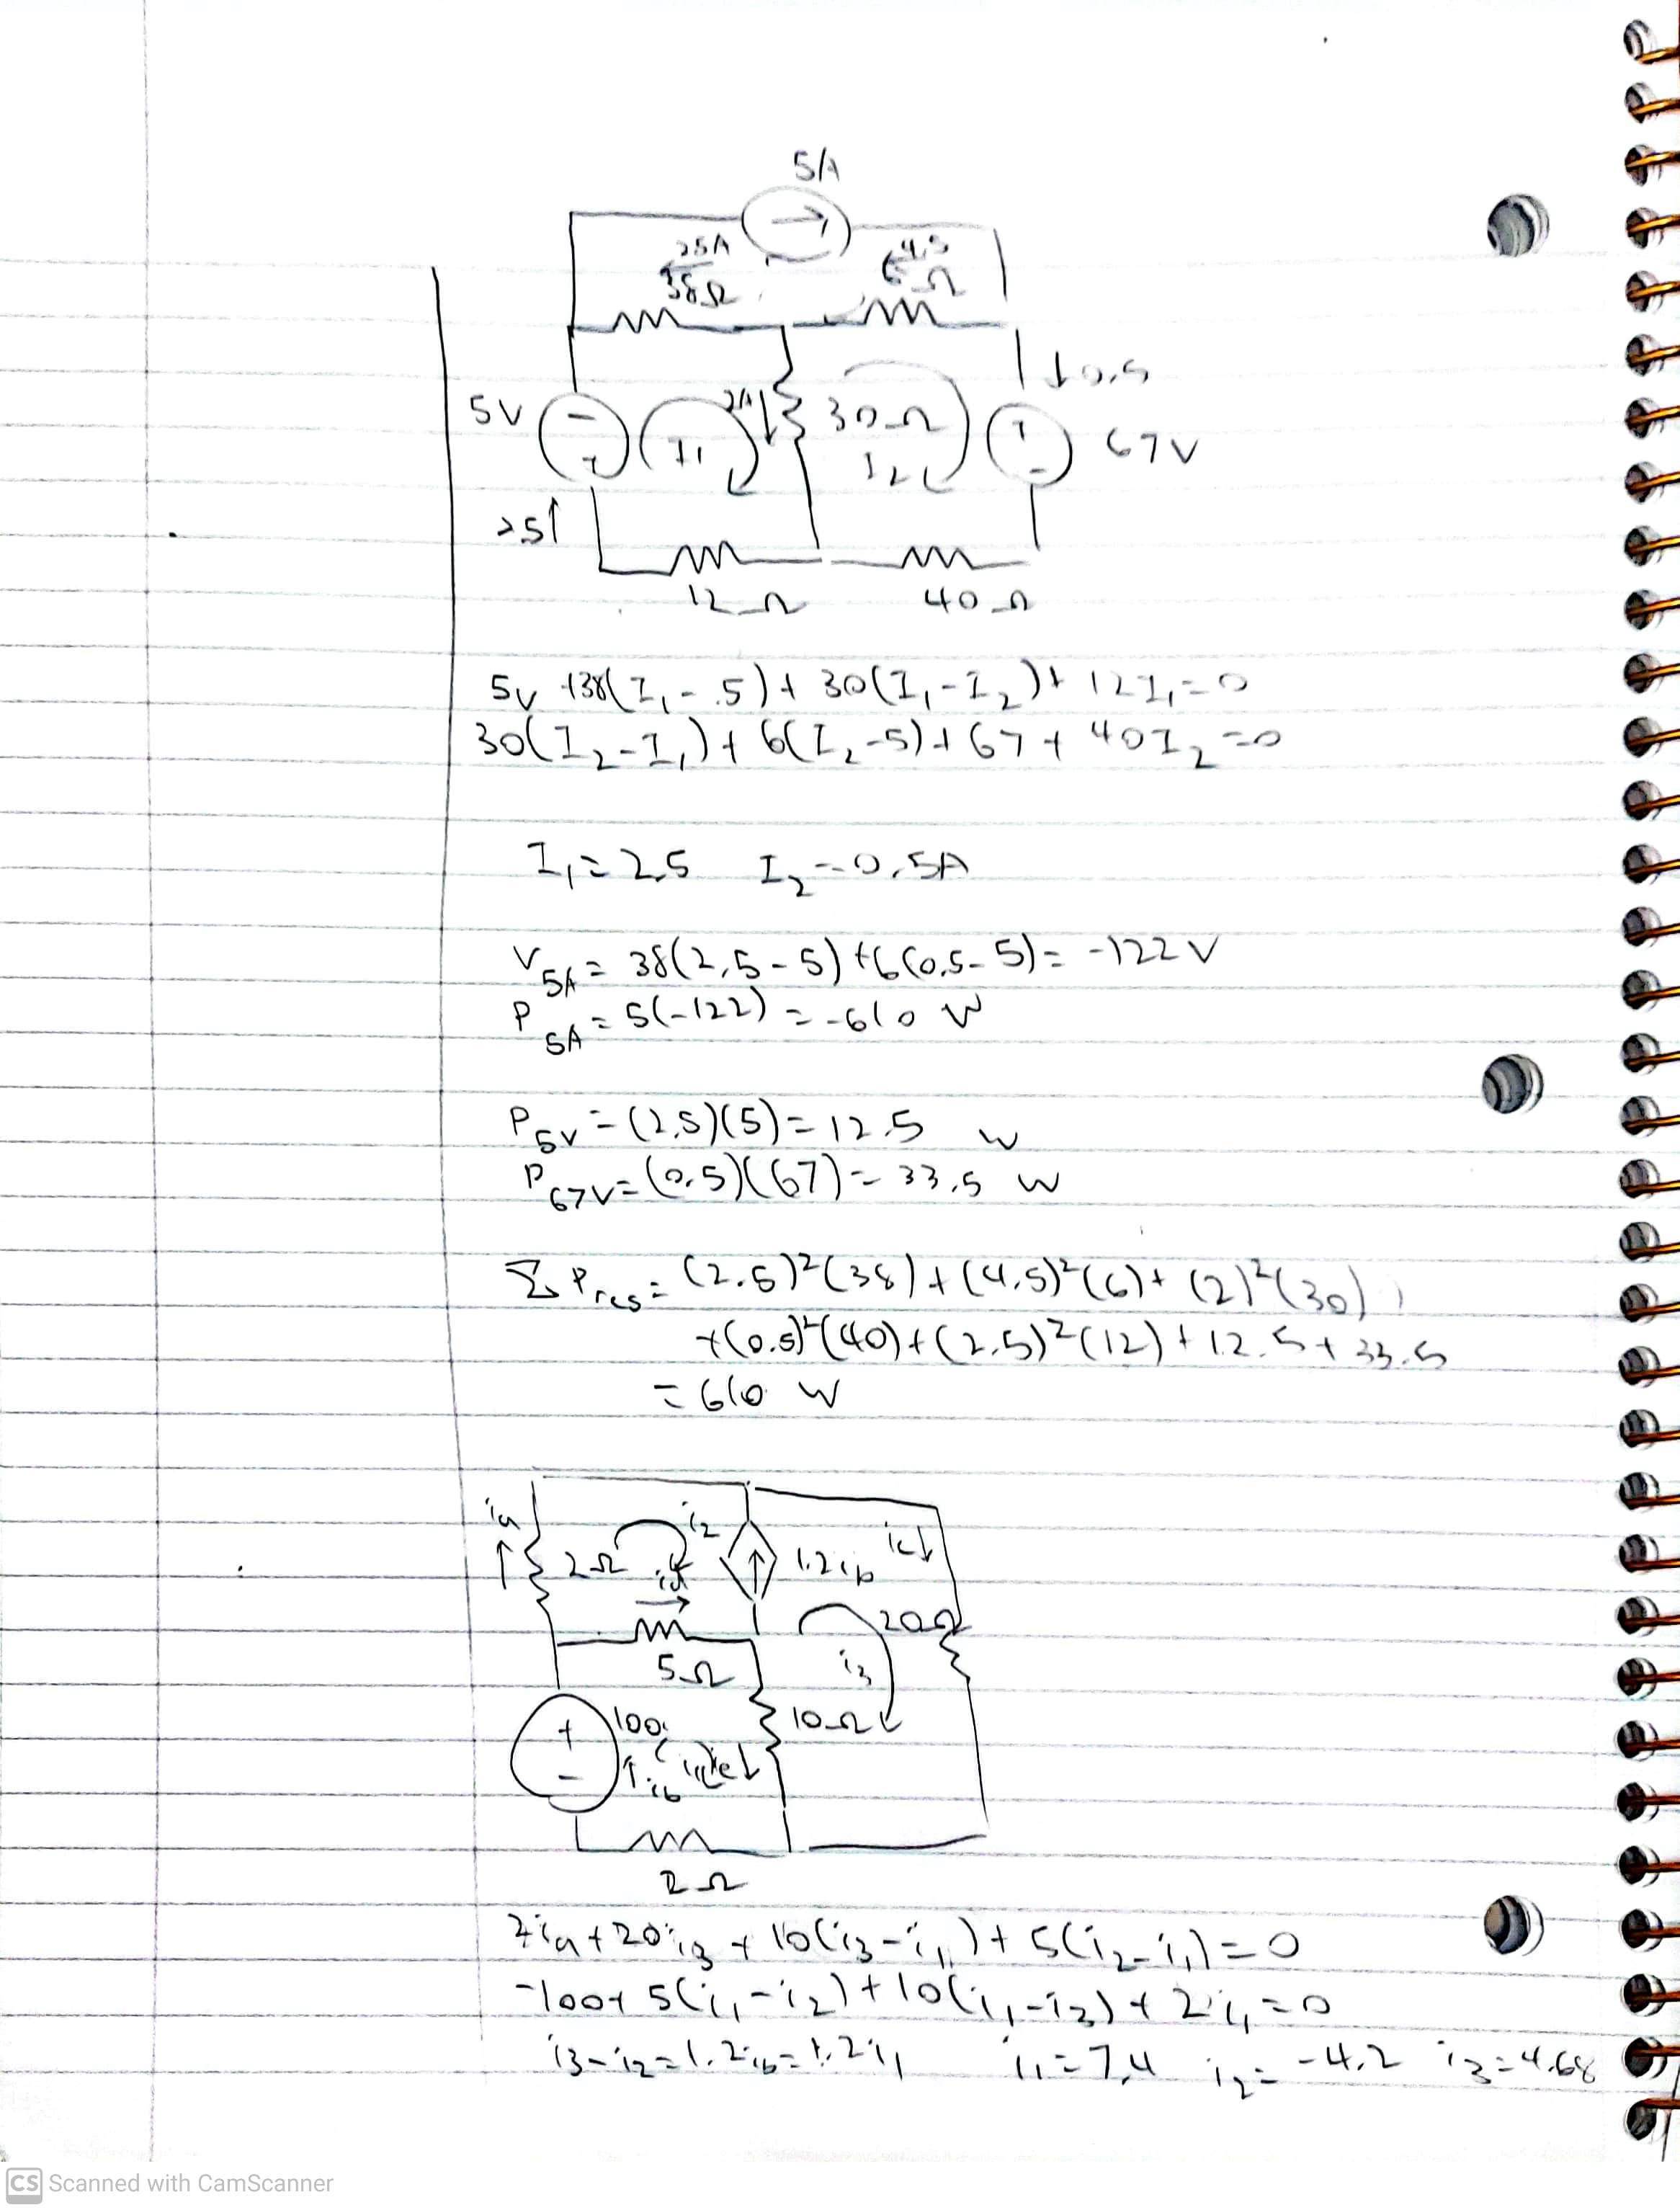 5A
2.5A
4.5
38Ω
6Ω
↓0.5
5V
I₁
2A
30Ω
I₂
67V
2.5↑
12Ω
40Ω
5v +38(I₁-.5)+30(I₁-I₂)+12I₁=0
30(I₂-I₁)+6(I₂-5)+67+40I₂=0
I₁=2.5 I₂=0.5A
V5A=38(2.5-5)+6(0.5-5)=-122V
P5A=5(-122)=-610 W
P5V=(2.5)(5)=12.5 W
P67V=(0.5)(67)=33.5 W
ΣPres=(2.5)²(38)+(4.5)²(6)+(2)²(30)
+(0.5)²(40)+(2.5)²(12)+12.5+33.5
=610 W
ia
i₂
ic↓
2Ω
id
1.2ib
20Ω
5Ω
i₃
100
10Ω
ib
i₁
ie↓
2Ω
2ia+20i₃+10(i₃-i₁)+5(i₂-i₁)=0
-100+5(i₁-i₂)+10(i₁-i₃)+2i₁=0
i₃-i₂=1.2ib=1.2i₁ i₁=7.4 i₂=-4.2 i₃=4.68
CS Scanned with CamScanner